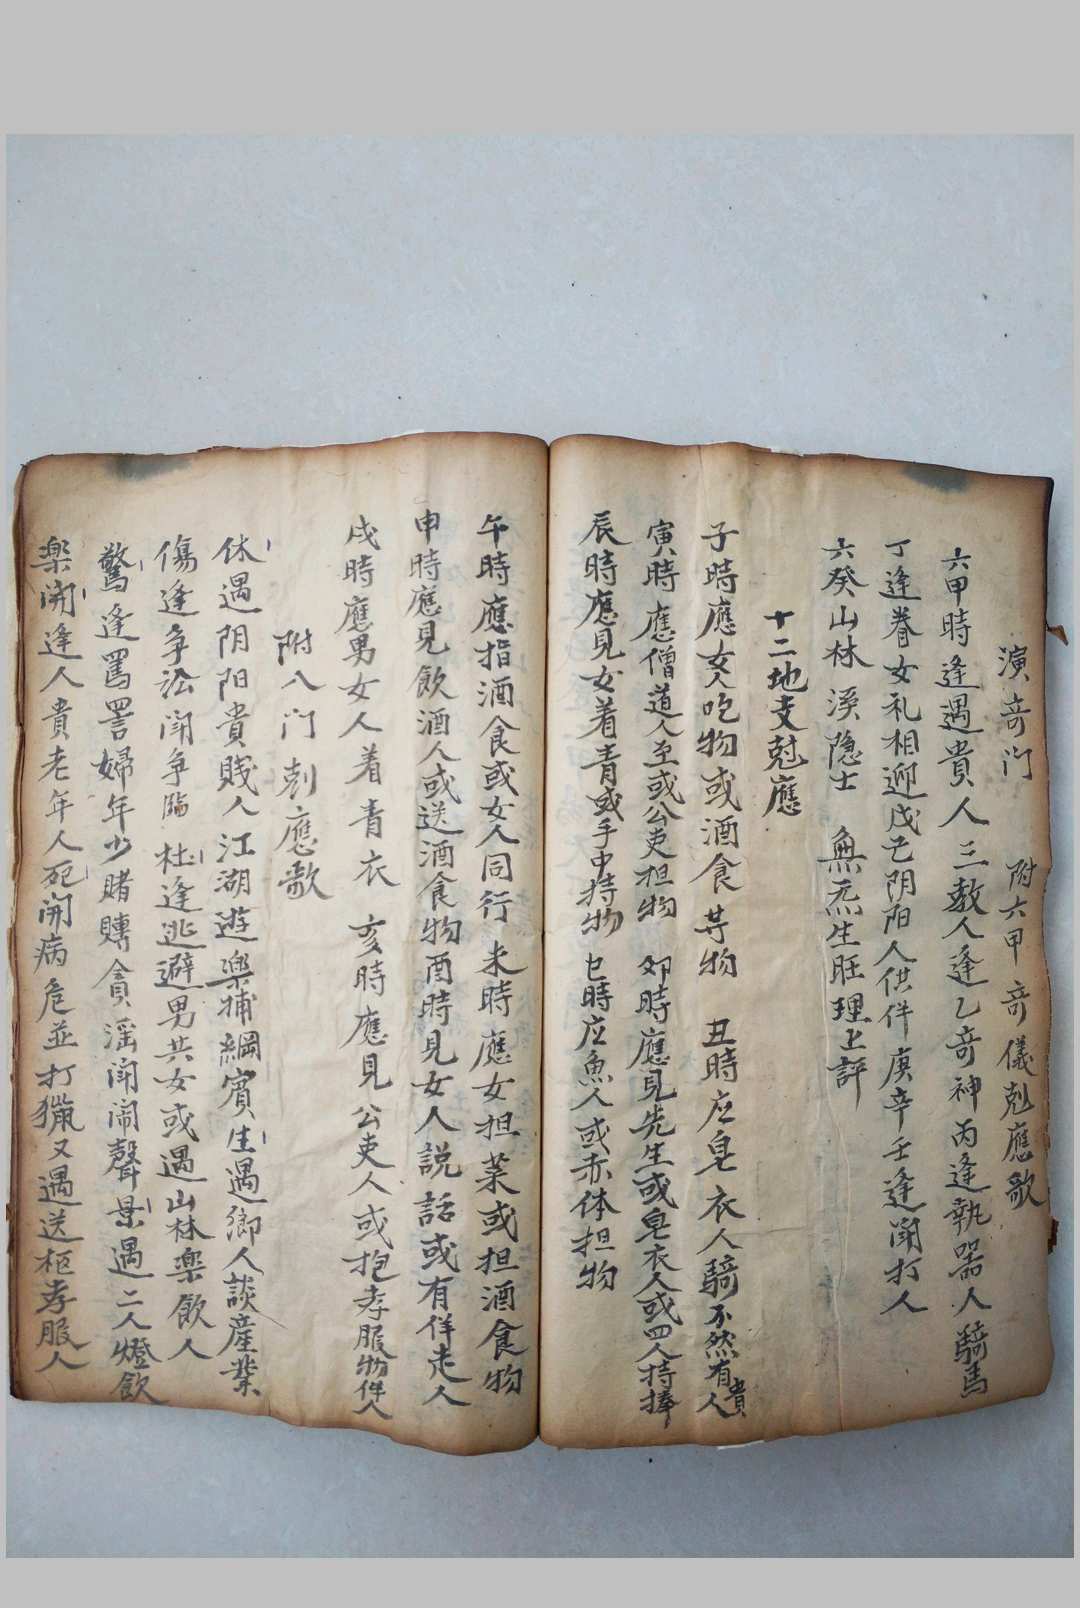 演竒门 附六甲竒儀剋應歌
六甲時逢遇貴人三教人逢乙竒神丙逢執器人騎馬
丁逢眷女礼相迎戊己阴阳人供伴庚辛壬逢闹打人
六癸山林溪隐士 無炁生旺理上評
十二地支尅應
子時應女人吃物或酒食等物 丑時应皂衣人騎不然有貴人
寅時應僧道人至或公吏担物 夘時應見先生或皂衣人或四人持捧
辰時應見女着青或手中持物 巳時应魚人或赤体担物
午時應指酒食或女人同行 未時應女担菜或担酒食物
申時應見飲酒人或送酒食物酉時見女人說話或有佯走人
戌時應男女人着青衣 亥時應見公吏人或抱孝服物伴人
附八门剋應歌
休遇阴阳貴賤人江湖遊樂捕綱賓生遇鄉人談産業
傷逢争訟闹争臨杜逢逃避男共女或遇山林樂飲人
驚逢罵詈婦年少賭賻貪淫闹闹聲景遇二人燈飲
楽開逢人貴老年人死開病危並打獵又遇送柩孝服人